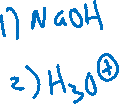 1) NaOH
2) H₃O⊕